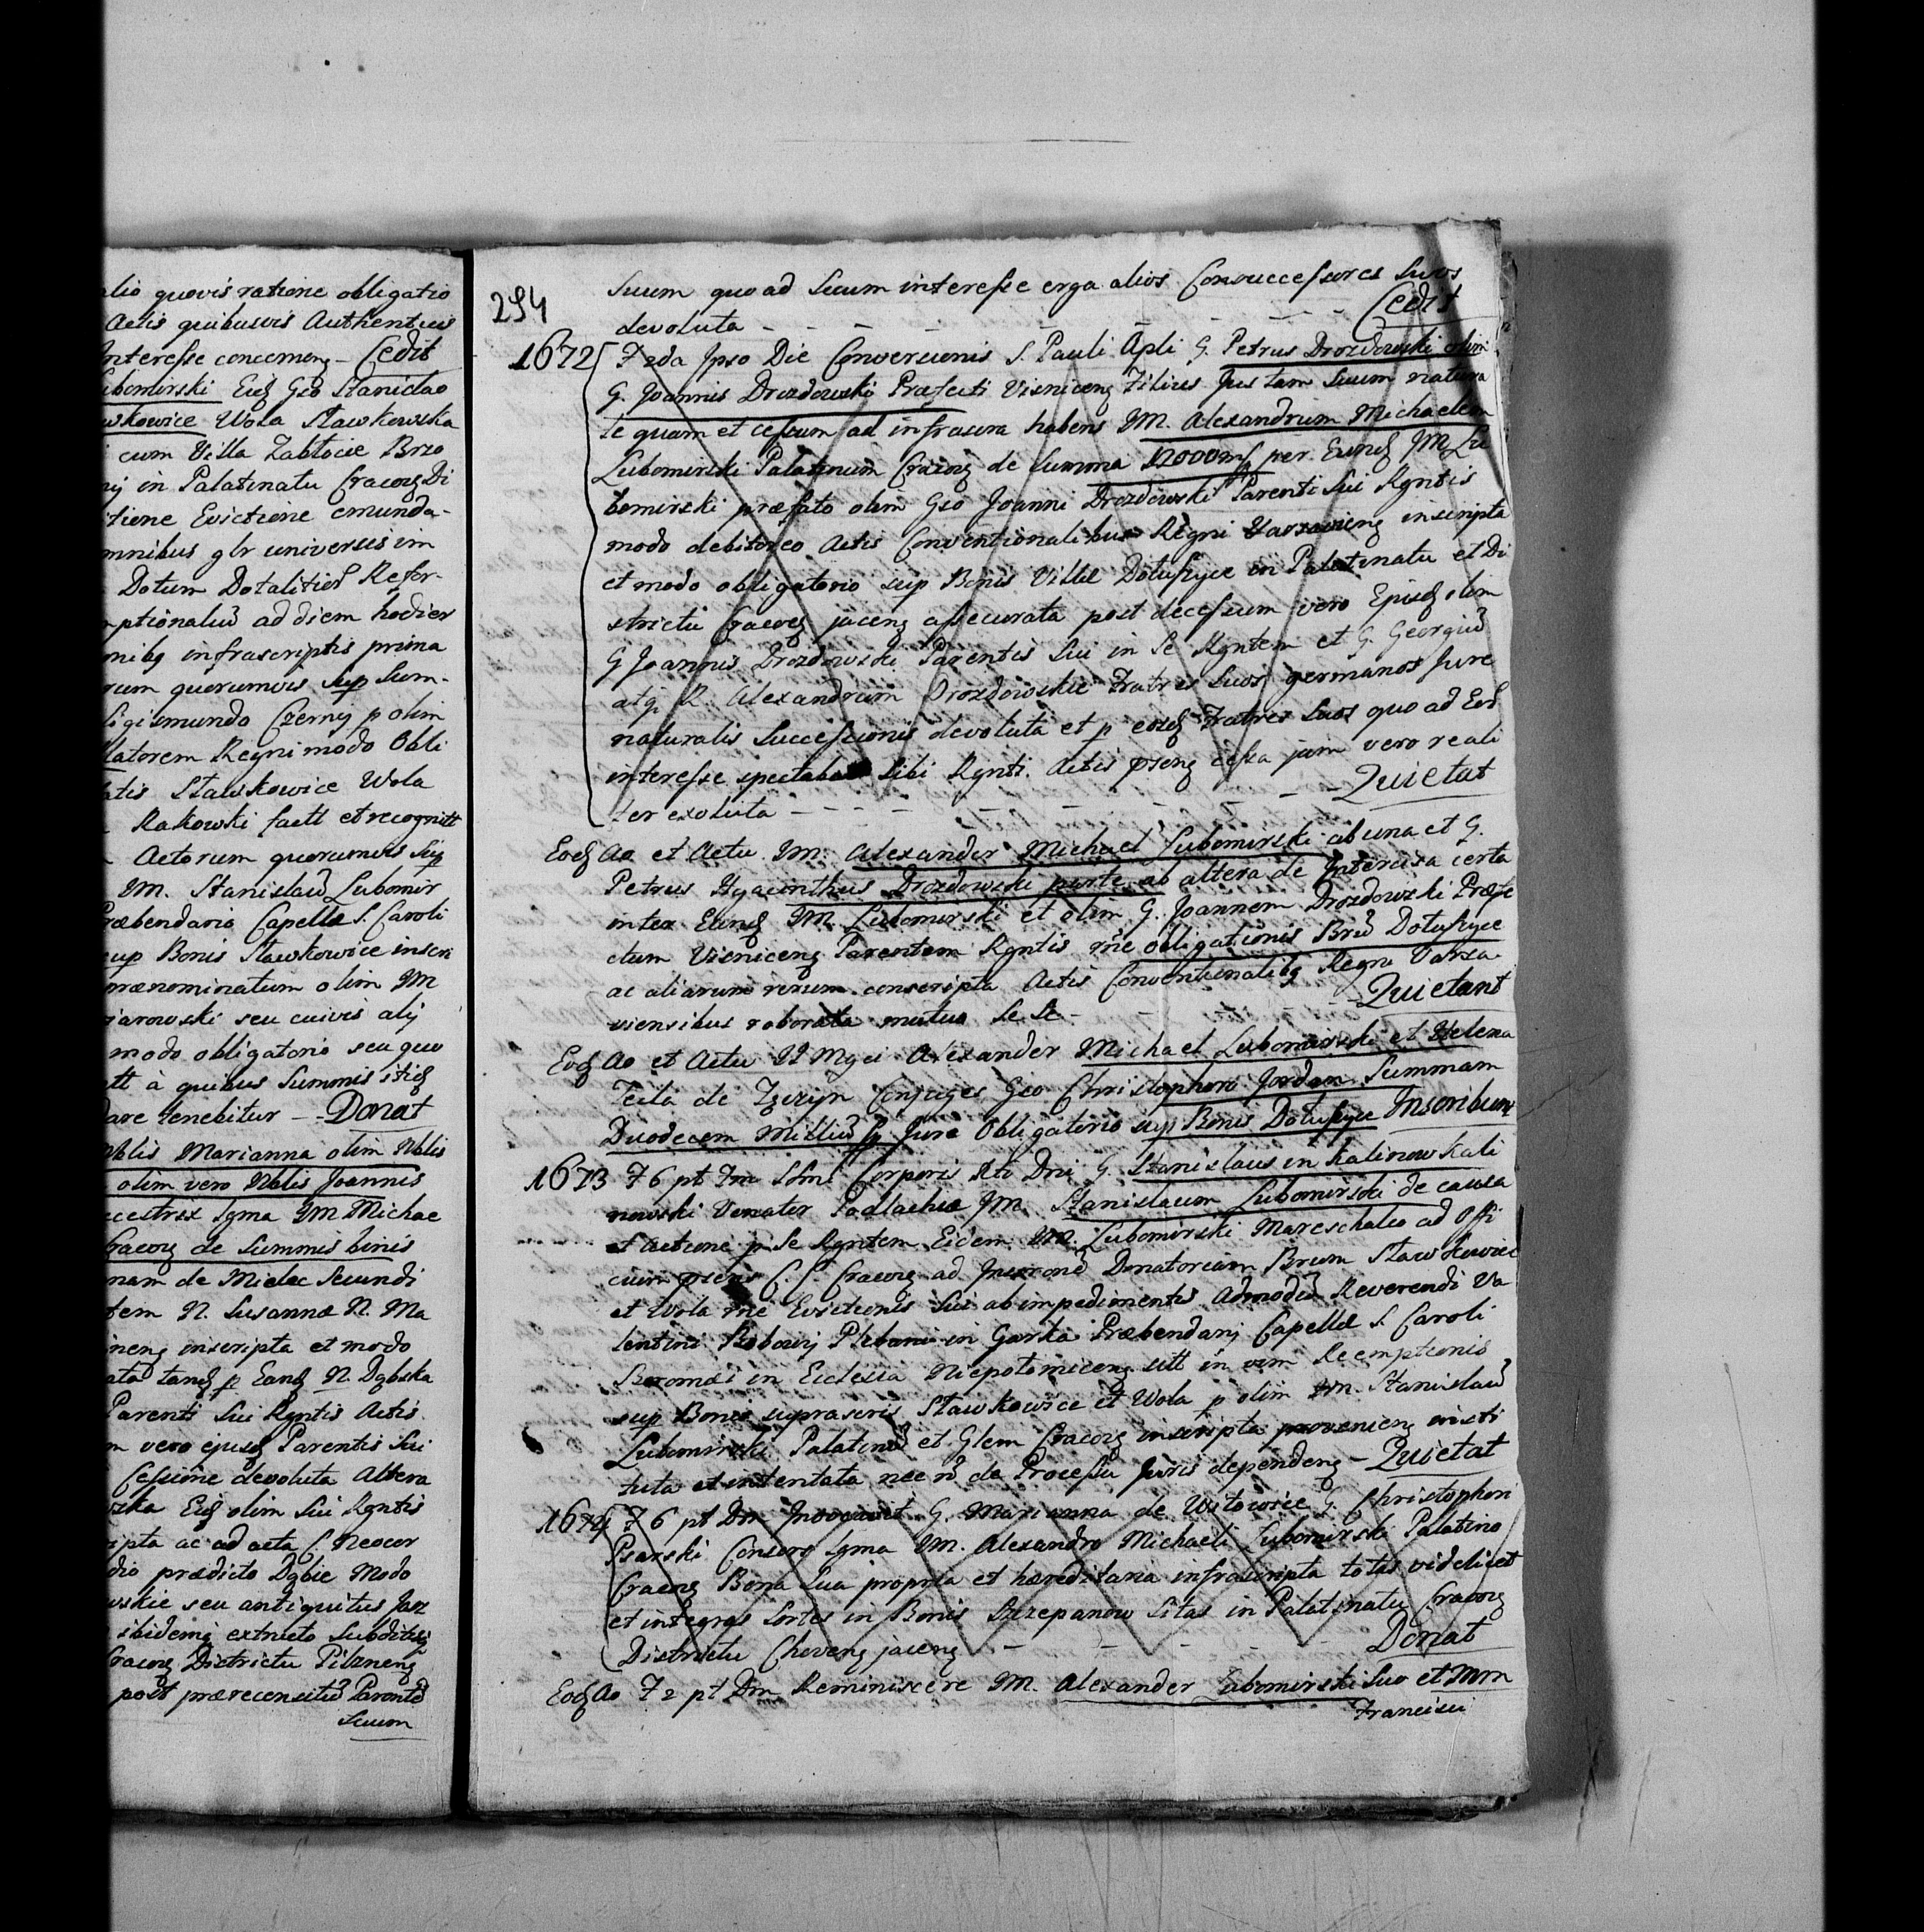 alio quovis ratione obligatio
Actis quibusvis Authenticis
Interesse concerneng – Cedit
Lubomirski Eidꝫ Gso Stanislao
awkowice Wola Stawkowska
cum Villa Zabłocie Brzo
nij in Palatinatu Cracovꝫ Di
itione Evictione emunda-
omnibus glr universis im
Dotum Dotalitior Refor-
mptionaliu ad diem hodier
onibꝫ infrascriptis prima
rum quorumvis sup Sum-
Sigismundo Czernij p olim
llatorem Regni modo Obli
atis Stawkowice Wola
Rakowski factt et recognitt
Actorum quorumvis Sup
IM. Stanislau Lubomir
Præbendario Capellæ S. Caroli
sup Bonis Stawkowice inscri
prænominatum olim IM
jarowski seu cuivis alij
modo obligatorio seu quo
tt à quibus Summis itidꝫ
dare tenebitur – Donat
Nblis Marianna olim Nblis
olim vero Nblis Joannis
ccestrix Igma IM Michae
Cracovꝫ de Summis binis
nam de Mielec Secundi
tem N. Susannæ N. Ma
ineng inscripta et modo
ata tandꝫ p Eandꝫ N. Dąbska
Parenti Sui Rgntis Actis
m vero ejusdꝫ Parentis Sui
Cessione devoluta Altera
ska Eidꝫ olim Sui Rgntis
ripta ac ad acta C. Neocor
dio prædicto Dąbie Modo
wskie seu antiquitus Jaz
ibidemꝗ extructo Subditisꝗ
Cracovꝫ Districtu Pilzneng
post prærecensitu Parente
Suum
294
Suum quo ad Suum interesse erga alios Consuccessores Suos
devoluta – – – – – – – Cedit
1672 F 2da Ipso Die Conversionis S. Pauli Apli G. Petrus Drozdowski olim
G. Joannis Drozdowski Præfecti Visniceng Filius Jus tam Suum natura
le quam et cessum ad infrascra habens IM. Alexandrum Michaelem
Lubomirski Palatinum Cracovꝫ de Summa 12000 mf per Eundꝫ IM Lu
bomirski præfato olim Gso Joanni Drozdowski Parenti Sui Rgntis
modo debitoreo Actis Conventionalibus Regni Varsavieng inscripta
et modo obligatorio sup Bonis Villæ Dołuszyce in Palatinatu et Di
strictu Cracovꝫ jaceng assecurata post decessum vero Ejusdꝫ olim
G Joannis Drozdowski Parentis Sui in Se Rgntem et G. Georgiu
atꝗ R. Alexandrum Drozdowskie Fratres Suos germanos Jure
naturalis Successionis devoluta et p eosdꝫ Fratres Suos quo ad Eor
interesse spectaba Sibi Rgnti Actis pseng cessa jam vero reali
ter exoluta – – – – – – – Quietat
Eodꝫ Ao et Actu IM. Alexander Michael Lubomirski ab una et G.
Petrus Hyacinthus Drozdowski parte ab altera de Intercisa certa
inter Eundꝫ IM. Lubomirski et olim G. Joannem Drozdowski Præfe
ctum Visniceng Parentem Rgntis rne obligationis Bru Dołuszyce
ac aliarum rerum conscripta Actis Conventionalibꝫ Regni Varsa
viensibus roborata mutuo Se Se – – Quietant
Eodꝫ Ao et Actu II Mgci Alexander Michael Lubomirski et Helena
Tecla de Conjuges Gso Christophoro Jordan Summam
Duodecem Milliu f Jure Obligatorio sup Bonis Dołuszyce Inscribunt
1673 F 6 pt Fm SSmi Corporis Xti Dni G. Stanislaus in Kalinow Kali
nowski Venator Podlachiæ IM. Stanislaum Lubomirski de causa
et Actione p Se Rgntem Eidem IM. Lubomirski Mareschalco ad Offi
cium pseng C. C. Cracovꝫ ad Inscrone Donatoriam Brum Stawkowice
et Wola rne Evictionis Sui ab impedimentis Admodu Reverendi Va
lentini Plebani in Gorka Præbendarij Capellæ S. Caroli
Boromæi in Ecclesia Niepołomiceng Stt in vim Reemptionis
sup Bonis suprascris Stawkowice et Wola p olim IM. Stanislau
Lubomirski Palatinu et Glem Cracovꝫ inscripta provenieng insti
tuta et intentata nec n de Processu Juris dependeng – Quietat
1674 F 6 pt Dm Invocavit G. Marianna de Witowice G. Christophori
Psarski Consors Igma IM. Alexandro Michaeli Lubomirski Palatino
Cracovꝫ Bona Sua propria et hæreditaria infrascripta totas videlicet
et integras Sortes in Bonis Szczepanow Sitas in Palatinatu Cracovꝫ
Districtu Choveng jaceng – – – – – Donat
Eodꝫ Ao F 2 pt Dm Reminiscere IM. Alexander Lubomirski Suo et Mm
Francisci